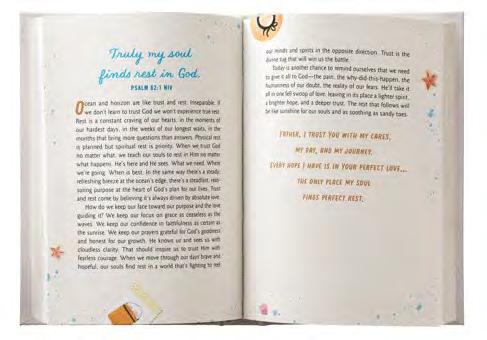 Truly my soul
finds rest in God.
PSALM 62:1 NIV
Ocean and horizon are like trust and rest. Inseparable. If
we don't learn to trust God we won't experience true rest.
Rest is a constant craving of our hearts, in the moments of
our hardest days, in the weeks of our longest waits, in the
months that bring more questions than answers. Physical rest
is planned but spiritual rest is priority. When we trust God
no matter what, we teach our souls to rest in Him no matter
what happens. He's here and He sees. What we need. Where
we're going. When is best. In the same way there's a steady,
refreshing breeze at the ocean's edge, there's a steadfast, reas-
suring purpose at the heart of God's plan for our lives. Trust
and rest come by believing it's always driven by absolute love.
How do we keep our face toward our purpose and the love
guiding it? We keep our focus on grace as ceaseless as the
waves. We keep our confidence in faithfulness as certain as
the sunrise. We keep our prayers grateful for God's goodness
and honest for our growth. He knows us and sees us with
cloudless clarity. That should inspire us to trust Him with
fearless courage. When we move through our days brave and
hopeful, our souls find rest in a world that's fighting to reel
our minds and spirits in the opposite direction. Trust is the
divine tug that will win us the battle.
Today is another chance to remind ourselves that we need
to give it all to God—the pain, the why-did-this-happen, the
humanness of our doubt, the reality of our fears. He'll take it
all in one fell swoop of love, leaving in its place a lighter spirit,
a brighter hope, and a deeper trust. The rest that follows will
be like sunshine for our souls and as soothing as sandy toes.
FATHER, I TRUST YOU WITH MY CARES,
MY DAY, AND MY JOURNEY.
EVERY HOPE I HAVE IS IN YOUR PERFECT LOVE...
THE ONLY PLACE MY SOUL
FINDS PERFECT REST.